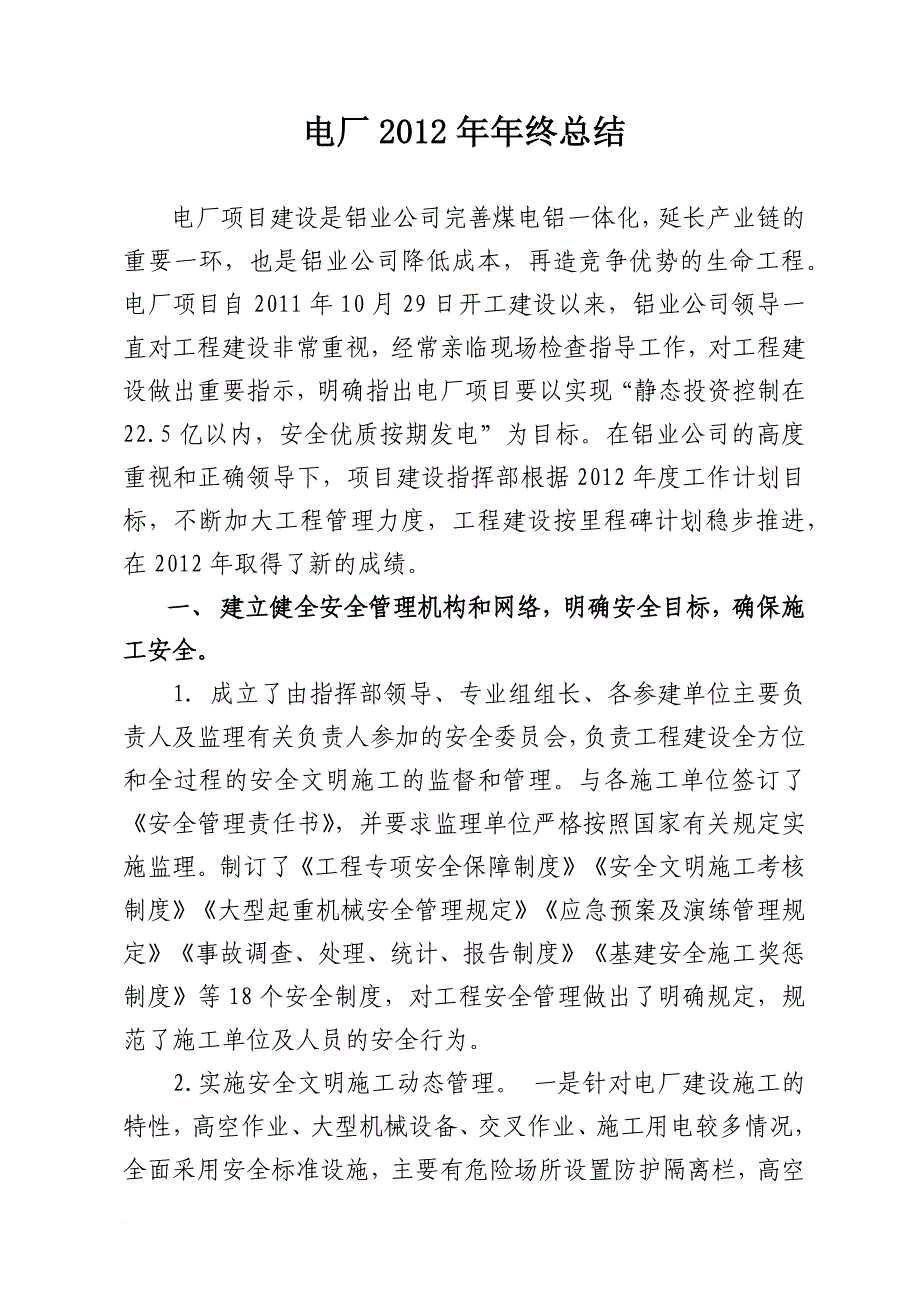 电厂 2012 年年终总结
电厂项目建设是铝业公司完善煤电铝一体化，延长产业链的
重要一环，也是铝业公司降低成本，再造竞争优势的生命工程。
电厂项目自 2011 年 10 月 29 日开工建设以来，铝业公司领导一
直对工程建设非常重视，经常亲临现场检查指导工作，对工程建
设做出重要指示，明确指出电厂项目要以实现“静态投资控制在
22.5 亿以内，安全优质按期发电”为目标。在铝业公司的高度
重视和正确领导下，项目建设指挥部根据 2012 年度工作计划目
标，不断加大工程管理力度，工程建设按里程碑计划稳步推进，
在 2012 年取得了新的成绩。
一、 建立健全安全管理机构和网络，明确安全目标，确保施
工安全。
1. 成立了由指挥部领导、专业组组长、各参建单位主要负
责人及监理有关负责人参加的安全委员会，负责工程建设全方位
和全过程的安全文明施工的监督和管理。与各施工单位签订了
《安全管理责任书》，并要求监理单位严格按照国家有关规定实
施监理。制订了《工程专项安全保障制度》《安全文明施工考核
制度》《大型起重机械安全管理规定》《应急预案及演练管理规
定》《事故调查、处理、统计、报告制度》《基建安全施工奖惩
制度》等 18 个安全制度，对工程安全管理做出了明确规定，规
范了施工单位及人员的安全行为。
2.实施安全文明施工动态管理。 一是针对电厂建设施工的
特性，高空作业、大型机械设备、交叉作业、施工用电较多情况，
全面采用安全标准设施，主要有危险场所设置防护隔离栏，高空